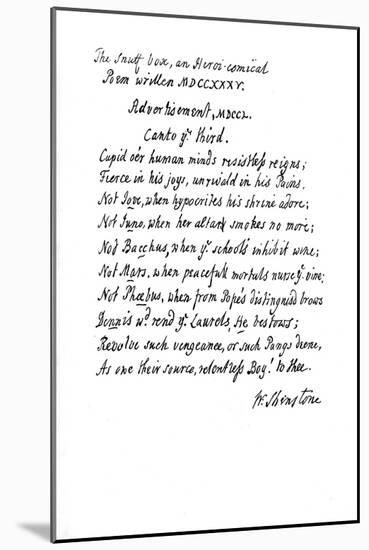 The Snuff box, an Heroi-comical
Poem written MDCCXXXV.
Advertisement, MDCCL.
Canto yᵉ third.
Cupid o'er human minds resistless reigns;
Fierce in his joys, unrivald in his Pains.
Not Jove, when hypocrites his shrine adore;
Not Juno, when her altars smokes no more;
Not Bacchus, when yᵉ schools inhibit wine;
Not Mars, when peacefull mortals nurse yᵉ vine;
Not Phœbus, when from Pope's distinguisd brows
Dennis wᵈ rend yᵉ Laurels, He bestows;
Revolve such vengeance, or such Pangs decree,
As one their source, relentless Boy! to thee.
W. Shenstone